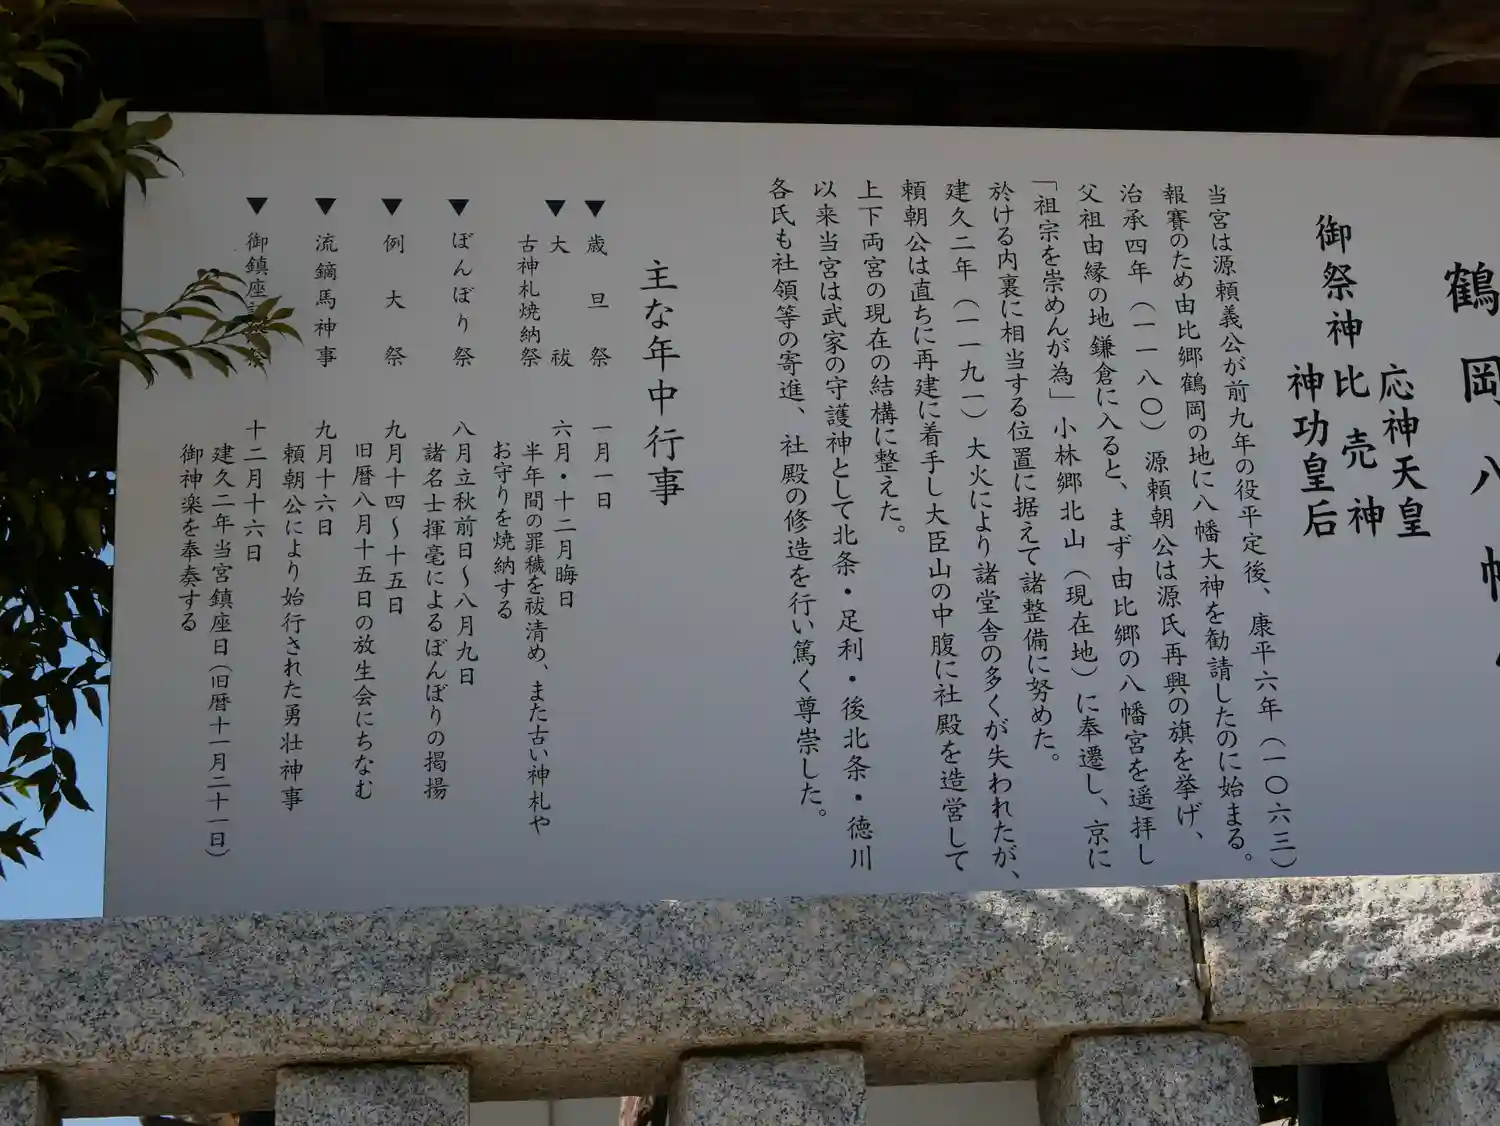 鶴岡八幡
御祭神
応神天皇
比売神
神功皇后
当宮は源頼義公が前九年の役平定後、康平六年（一〇六三）
報賽のため由比郷鶴岡の地に八幡大神を勧請したのに始まる。
治承四年（一一八〇）源頼朝公は源氏再興の旗を挙げ、
父祖由縁の地鎌倉に入ると、まず由比郷の八幡宮を遥拝し
「祖宗を崇めんが為」小林郷北山（現在地）に奉遷し、京に
於ける内裏に相当する位置に据えて諸整備に努めた。
建久二年（一一九一）大火により諸堂舎の多くが失われたが、
頼朝公は直ちに再建に着手し大臣山の中腹に社殿を造営して
上下両宮の現在の結構に整えた。
以来当宮は武家の守護神として北条・足利・後北条・徳川
各氏も社領等の寄進、社殿の修造を行い篤く尊崇した。
主な年中行事
▼歳旦祭 一月一日
▼大祓 六月・十二月晦日
古神札焼納祭 半年間の罪穢を祓清め、また古い神札や
お守りを焼納する
▼ぼんぼり祭 八月立秋前日〜八月九日
諸名士揮毫によるぼんぼりの掲揚
▼例大祭 九月十四〜十五日
旧暦八月十五日の放生会にちなむ
▼流鏑馬神事 九月十六日
頼朝公により始行された勇壮神事
▼御鎮座記念祭 十二月十六日
建久二年当宮鎮座日（旧暦十一月二十一日）
御神楽を奉奏する